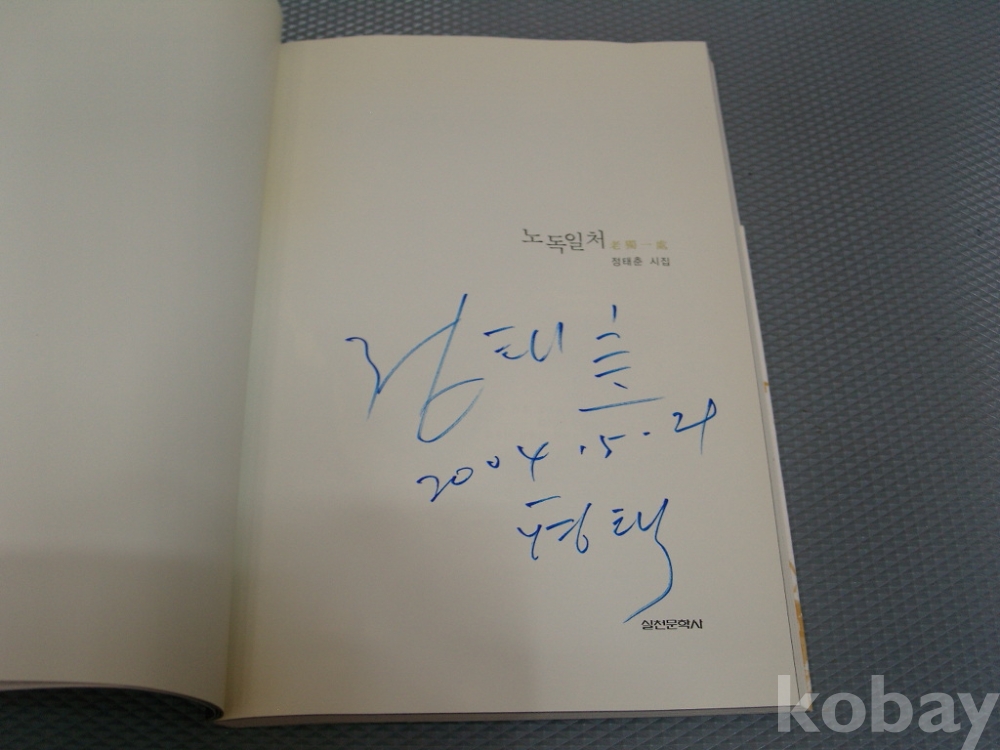 노독일처 老獨一處
정태춘 시집
정태춘
2004.5.29
평택
실천문학사
kobay